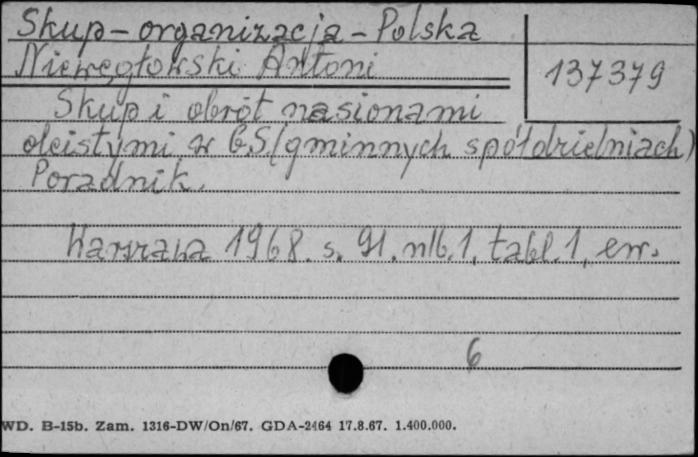 Skup - organizacja - Polska
Niewęgłowski Antoni
137379
Skup i obrót nasionami
oleistymi w G.S/gminnych spółdzielniach)
Poradnik.
Warszawa 1968. s. 91, nlb. 1, tabl. 1, err.
6
WD. B-15b. Zam. 1316-DW/On/67. GDA-2464 17.8.67. 1.400.000.